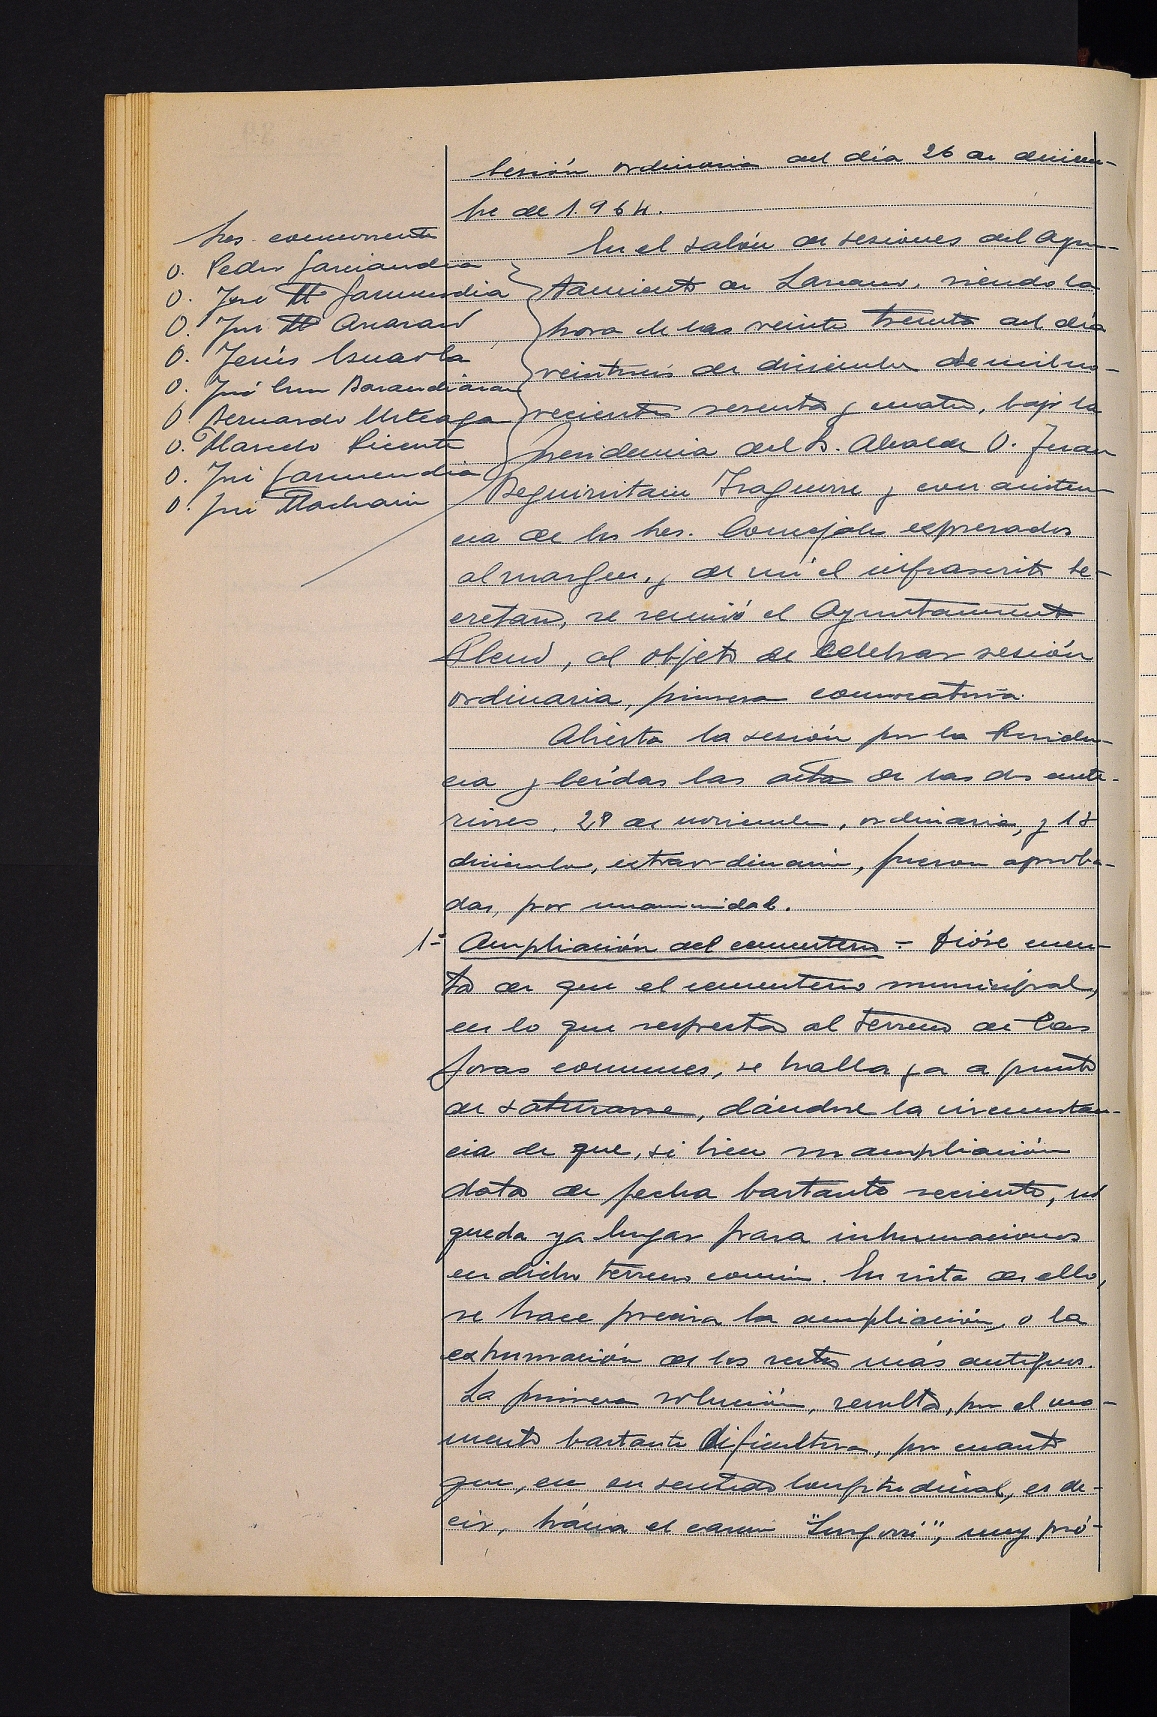 Sesión ordinaria del día 26 de diciem-
bre de 1.964.
Sres. concurrentes
D. Pedro Garciandia
D. José Mª Garmendia
D. José Mª
D. Jesús
D. José Luis Barandiaran
D. Bernardo Urteaga
D. Marcelo Vicente
D. José Garmendia
D. José
En el salón de sesiones del Ayun-
tamiento de Lazcano, siendo la
hora de las veinte treinta del día
veintiseis de diciembre de mil no-
vecientos sesenta y cuatro, bajo la
Presidencia del S. Alcalde D. Juan
Beguiristain y con asisten-
cia de los Sres. Concejales expresados
al margen, y de mí el infrascrito Se-
cretario, se reunió el Ayuntamiento
Pleno, al objeto de celebrar sesión
ordinaria, primera convocatoria.
Abierta la sesión por la Presiden-
cia y leídas las actas de las dos ante-
riores, 28 de noviembre, ordinaria, y 18
diciembre, extraordinaria, fueron aproba-
das, por unanimidad.
1º Ampliación del cementerio - Dióse cuen-
ta de que el cementerio municipal,
en lo que respecta al terreno de las
fosas comunes, se halla ya a punto
de saturarse, dándose la circunstan-
cia de que, si bien su ampliación
data de fecha bastante reciente, no
queda ya lugar para inhumaciones
en dicho terreno común. En vista de ello,
se hace precisa la ampliación, o la
exhumación de los restos más antiguos.
La primera solución, resulta, por el mo-
mento bastante dificultosa, por cuanto
que, en su sentido longitudinal, es de-
cir, hácia el caserío muy pró-